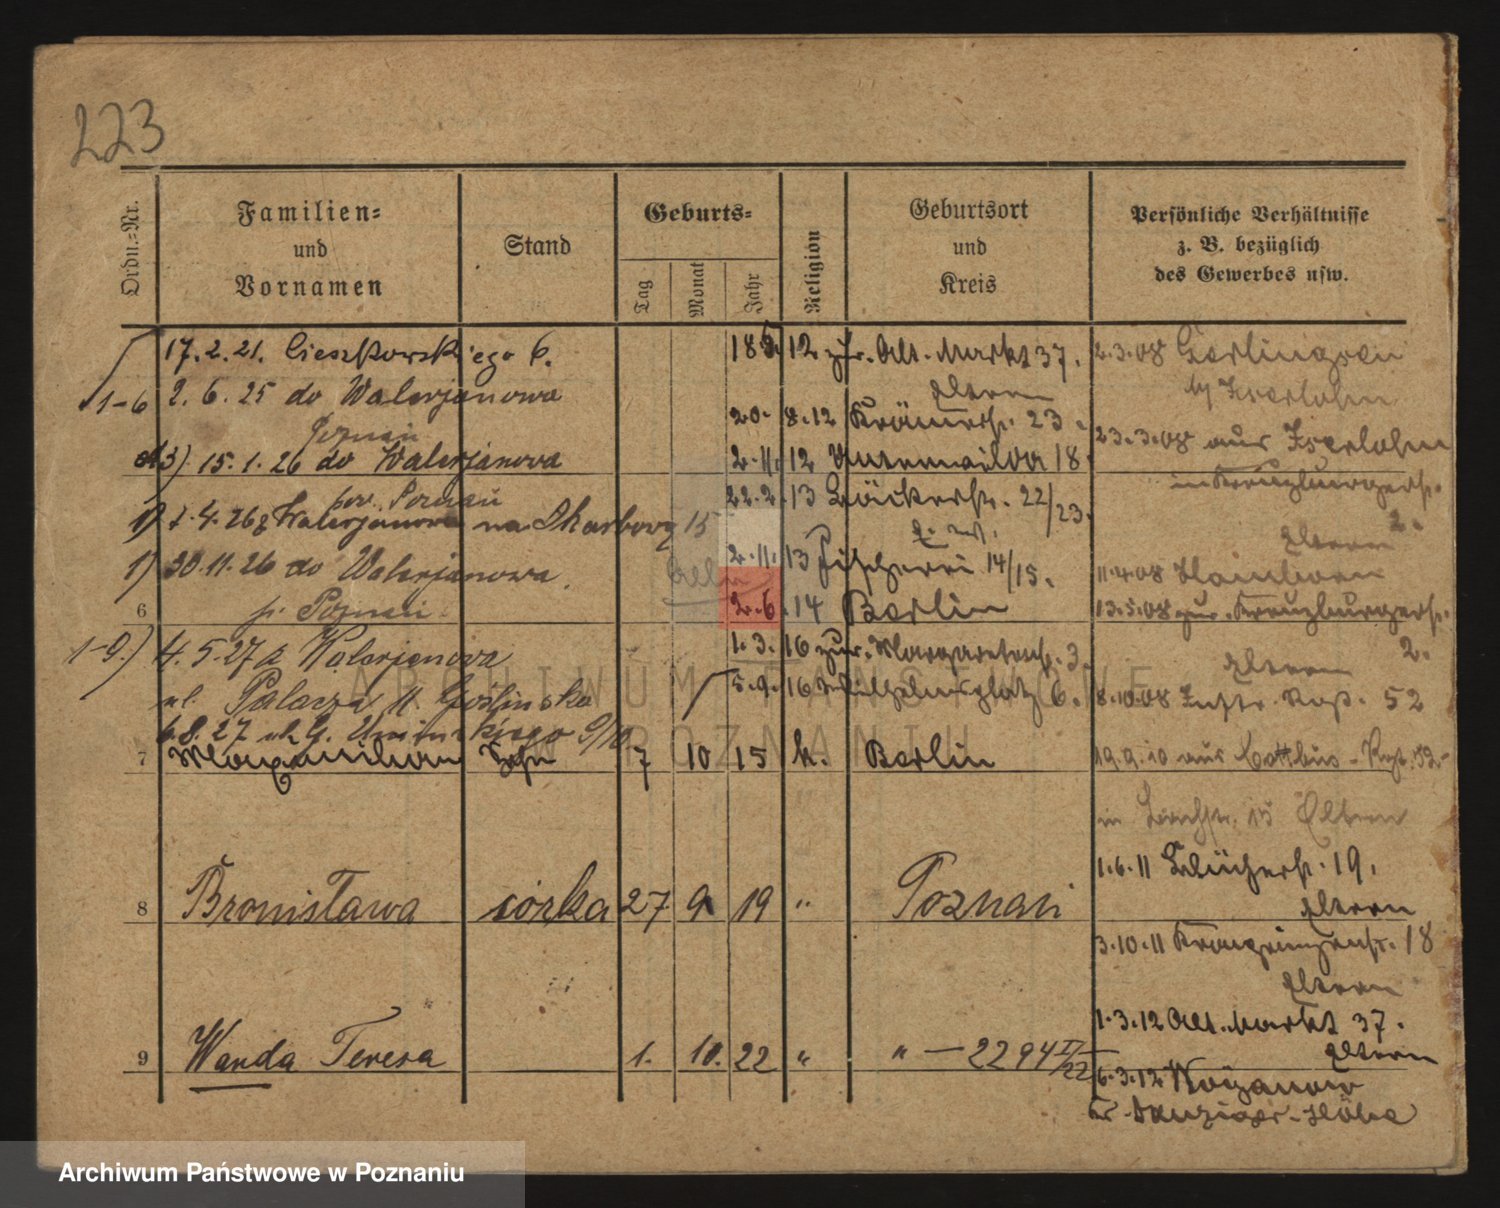 223
Ordn.-Nr.
Familien-
und
Vornamen
Stand
Geburts-
Tag
Monat
Jahr
Religion
Geburtsort
und
Kreis
Persönliche Verhältnisse
z. B. bezüglich
des Gewerbes usw.
17. 2. 21. Cieszkowskiego 6.
12 zur. Alt. Markt 37.
2.3.08
Eltern
1-6 2. 6. 25 do Walerjanowa
20. 8. 12 Krämerstr. 23.
Poznań
23.3.08 aus Iserlohn
3) 15. 1. 26 do Walerjanowa
2. 11. 12 Unterwilda 18.
in Kreuzburgerstr.
2.
pow. Poznań
22. 2. 13 Bäckerstr. 22/23.
1) 1. 4. 26 z Walerjanowa na Skarbową 15
Eltern
2. 11. 13 Fischerei 14/15.
11.4.08 Hamborn
1) 30. 11. 26 do Walerjanowa.
6 p. Poznań
2. 6. 14 Berlin
13.5.08 zur. Kreuzburgerstr.
2.
Eltern
1-9.) 4. 5. 27 z Walerjanowa
1. 3. 16 zur. Margaretenstr. 3.
ul. Palacza 11 Goślinska
5. 9. 16 Wilhelmsplatz 6.
8.10.08 52
6. 8. 27 ul. G. Umińskiego 9/10
7 Maximilian Sohn 7 10 15 k. Berlin
19.9.10 aus Cottbus
15 Eltern
1.6.11 Blücherstr. 19.
Eltern
8 Bronisława córka 27 9 19 " Poznań
3.10.11 Kronprinzenstr. 18
Eltern
1.3.12 Alt. Markt 37.
Eltern
9 Wanda Teresa 1. 10. 22 " " — 2294 II/22
6.3.12
Kr. Danziger-Höhe
ARCHIWUM PAŃSTWOWE
W POZNANIU
Archiwum Państwowe w Poznaniu